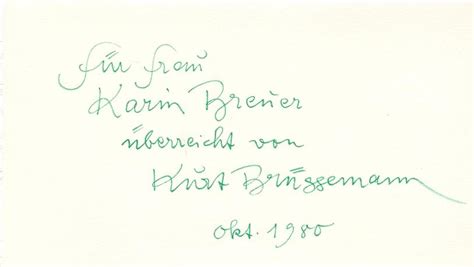 für Frau
Karin Breuer
überreicht von
Kurt Brüggemann
Okt. 1980